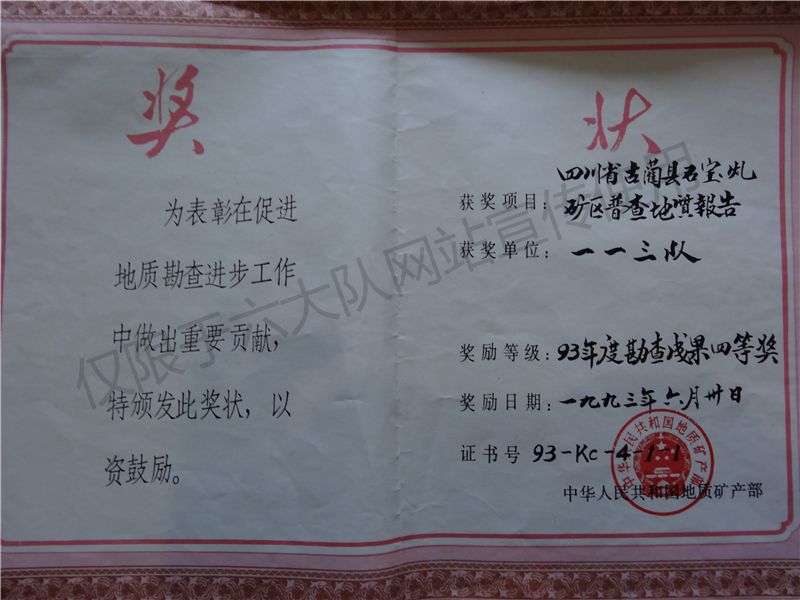 奖状
为表彰在促进
地质勘查进步工作
中做出重要贡献，
特颁发此奖状，以
资鼓励。
获奖项目：四川省古蔺县石宝
矿区普查地质報告
获奖单位：一一三队
奖励等级：93年度勘查成果四等奖
奖励日期：一九九三年六月卅日
证书号 93-Kc-4-1-1
中华人民共和国地质矿产部
中华人民共和国地质矿产部
仅限于六大队网站宣传使用